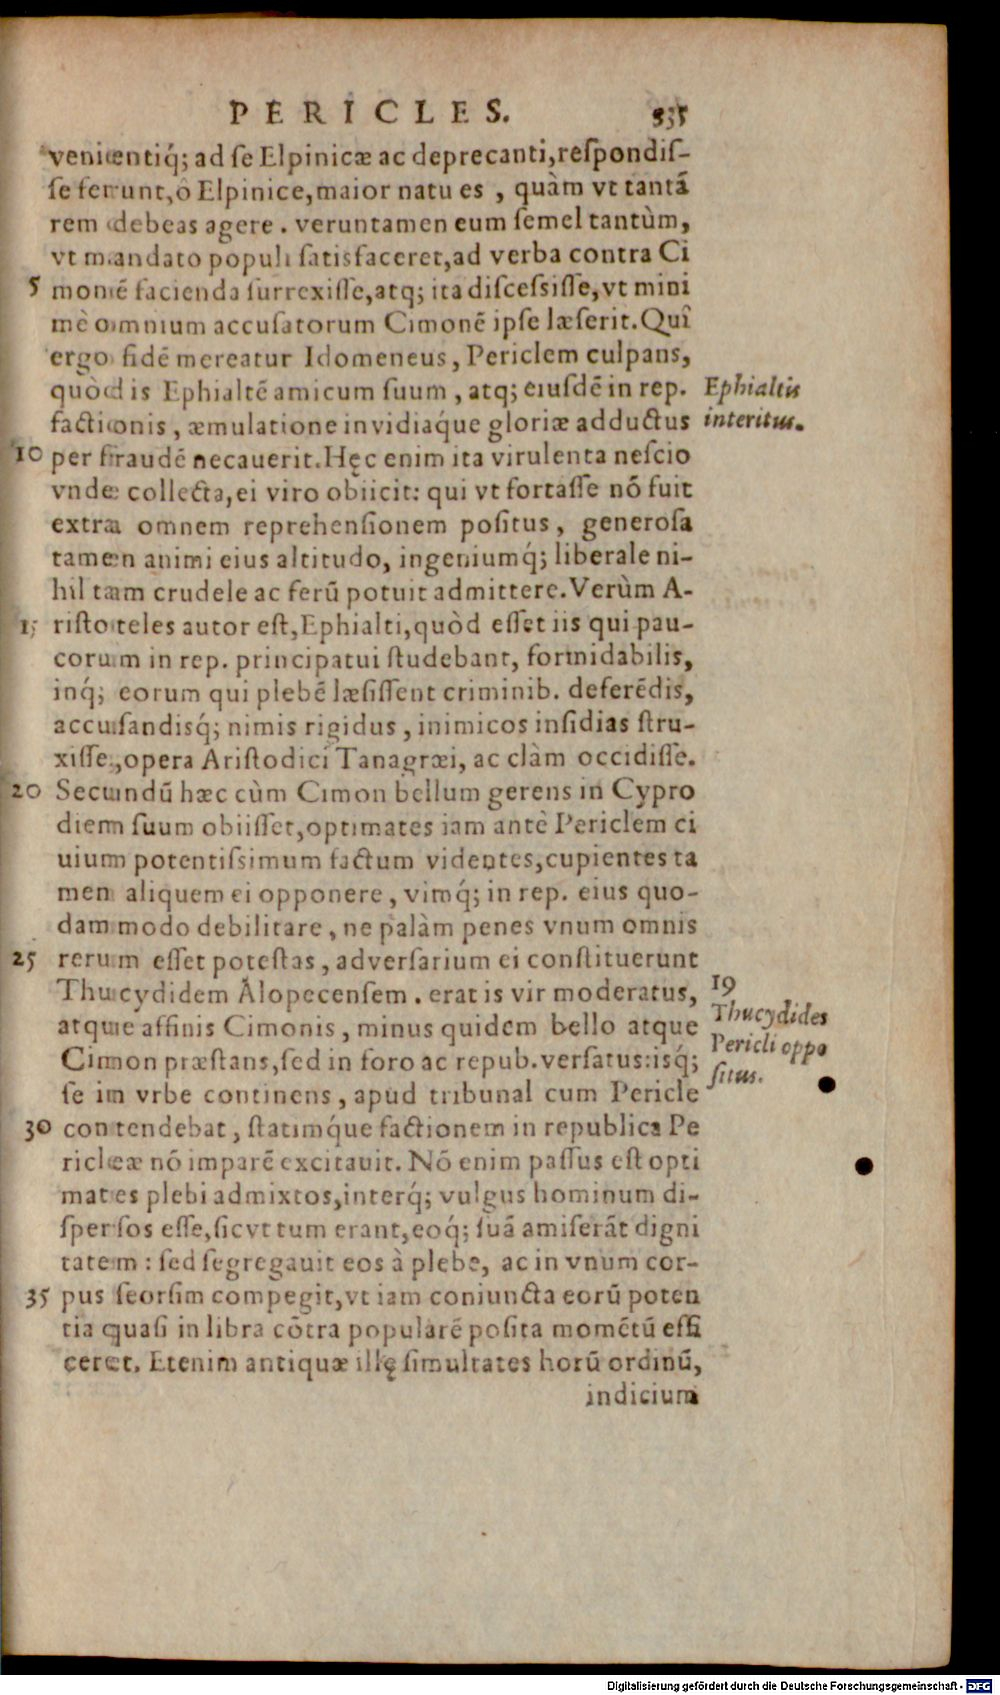 PERICLES. 535
venientiq́; ad se Elpinicæ ac deprecanti, respondis-
se ferunt, ô Elpinice, maior natu es, quàm vt tantã
rem debeas agere. veruntamen eum semel tantùm,
vt mandato populi satisfaceret, ad verba contra Ci
5 monẽ facienda surrexisse, atq; ita discessisse, vt mini
mè omnium accusatorum Cimonẽ ipse læserit. Quî
ergo fidẽ mereatur Idomeneus, Periclem culpans,
quòd is Ephialtẽ amicum suum, atq; eiusdẽ in rep.
Ephialtis
factionis, æmulatione invidiaq́ue gloriæ adductus
interitus.
10 per fraudẽ necauerit. Hęc enim ita virulenta nescio
vnde collecta, ei viro obiicit: qui vt fortasse nõ fuit
extra omnem reprehensionem positus, generosa
tamen animi eius altitudo, ingeniumq́; liberale ni-
hil tam crudele ac ferũ potuit admittere. Verùm A-
15 ristoteles autor est, Ephialti, quòd esset iis qui pau-
corum in rep. principatui studebant, formidabilis,
inq́; eorum qui plebẽ læsissent criminib. deferẽdis,
accusandisq́; nimis rigidus, inimicos insidias stru-
xisse, opera Aristodici Tanagræi, ac clàm occidisse.
20 Secundũ hæc cùm Cimon bellum gerens in Cypro
diem suum obiisset, optimates iam antè Periclem ci
uium potentissimum factum videntes, cupientes ta
men aliquem ei opponere, vimq́; in rep. eius quo-
dam modo debilitare, ne palàm penes vnum omnis
25 rerum esset potestas, adversarium ei constituerunt
Thucydidem Alopecensem. erat is vir moderatus,
19
atque affinis Cimonis, minus quidem bello atque
Thucydides
Cimon præstans, sed in foro ac repub. versatus: isq́;
Pericli oppo
se in vrbe continens, apud tribunal cum Pericle
situs.
30 contendebat, statimq́ue factionem in republica Pe
ricleæ nõ imparẽ excitauit. Nõ enim passus est opti
mates plebi admixtos, interq́; vulgus hominum di-
spersos esse, sicvt tum erant, eoq́; suã amiserãt digni
tatem: sed segregauit eos à plebe, ac in vnum cor-
35 pus seorsim compegit, vt iam coniuncta eorũ poten
tia quasi in libra cõtra popularẽ posita momẽtũ effi
ceret. Etenim antiquæ illę simultates horũ ordinũ,
indicium
Digitalisierung gefördert durch die Deutsche Forschungsgemeinschaft - DFG